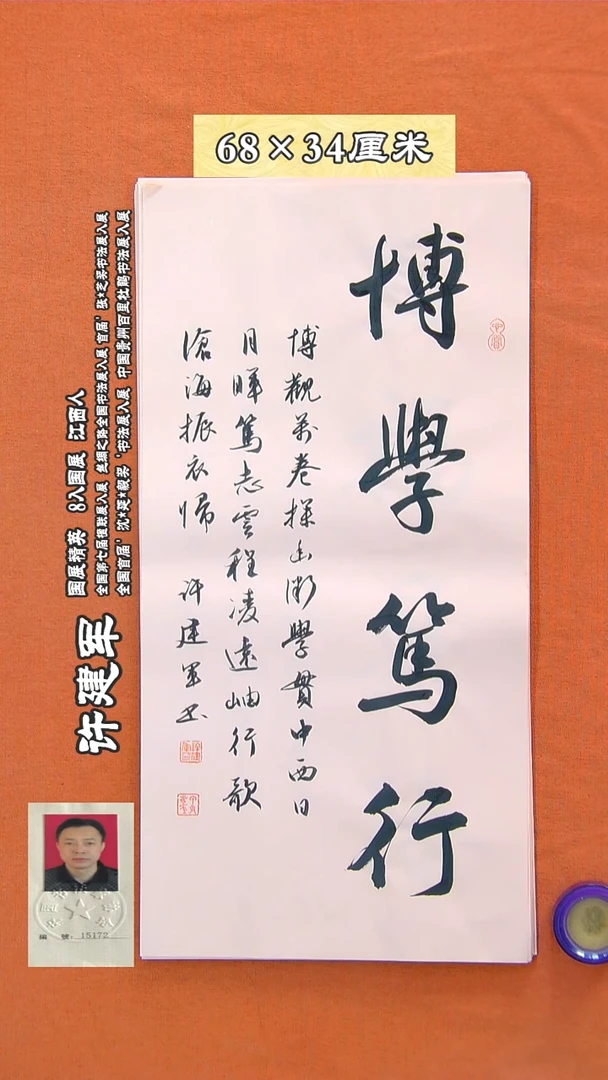 68×34厘米
博學篤行
博觀萬卷探幽微學貫中西日
月暉篤志雲程凌遠岫行歌
滄海振衣歸 許建軍書
许建军
国展精英 8入国展 江西人
全国第七届楹联展入展 丝绸之路全国书法展入展 首届‘张★芝奖书法展入展
全国首届‘沈★延★毅奖‘书法展入展 中国贵州百里杜鹃书法展入展
編 號：15172